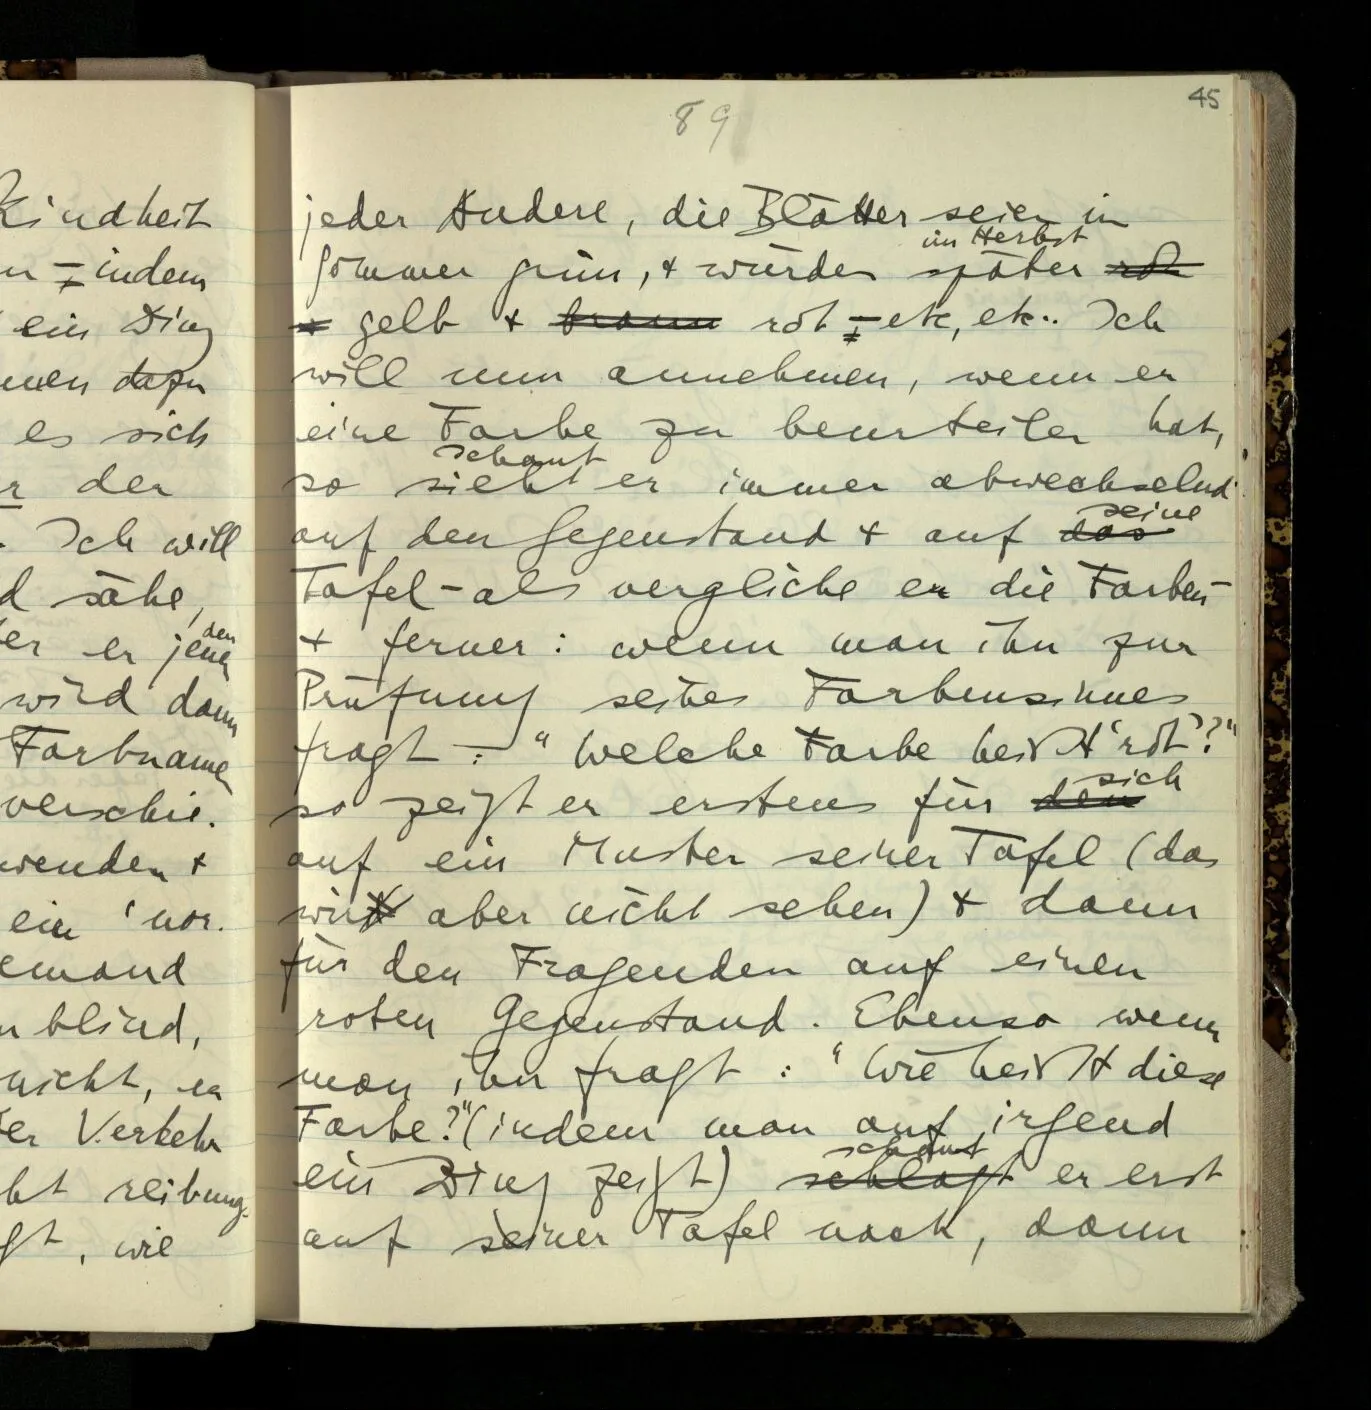 Kindheit
indem
ein Ding
men dazu
es sich
r der
Ich will
d sähe,
den
er er jenen
wird dann
Farbname
verschie-
wenden +
ein 'nor-
emand
n blind,
nicht, er
er Verkehr
ht reibung-
gt, wie
45
89
jeder Andere, die Blätter seien in
im Herbst
Sommer grün, + würden später rot
+ gelb + braun rot – etc, etc.. Ich
will nun annehmen, wenn er
eine Farbe zu beurteilen hat,
schaut
so sieht er immer abwechselnd
seine
auf den Gegenstand + auf das
Tafel – als vergliche er die Farben –
+ ferner: wenn man ihn zur
Prüfung seines Farbensinnes
fragt: "Welche Farbe heißt 'rot'?"
sich
so zeigt er erstens für den
auf ein Muster seiner Tafel (das
wir aber nicht sehen) + dann
für den Fragenden auf einen
roten Gegenstand. Ebenso wenn
man ihn fragt: "Wie heißt diese
Farbe?" (indem man auf irgend
schaut
ein Ding zeigt) schlägt er erst
auf seiner Tafel nach, dann